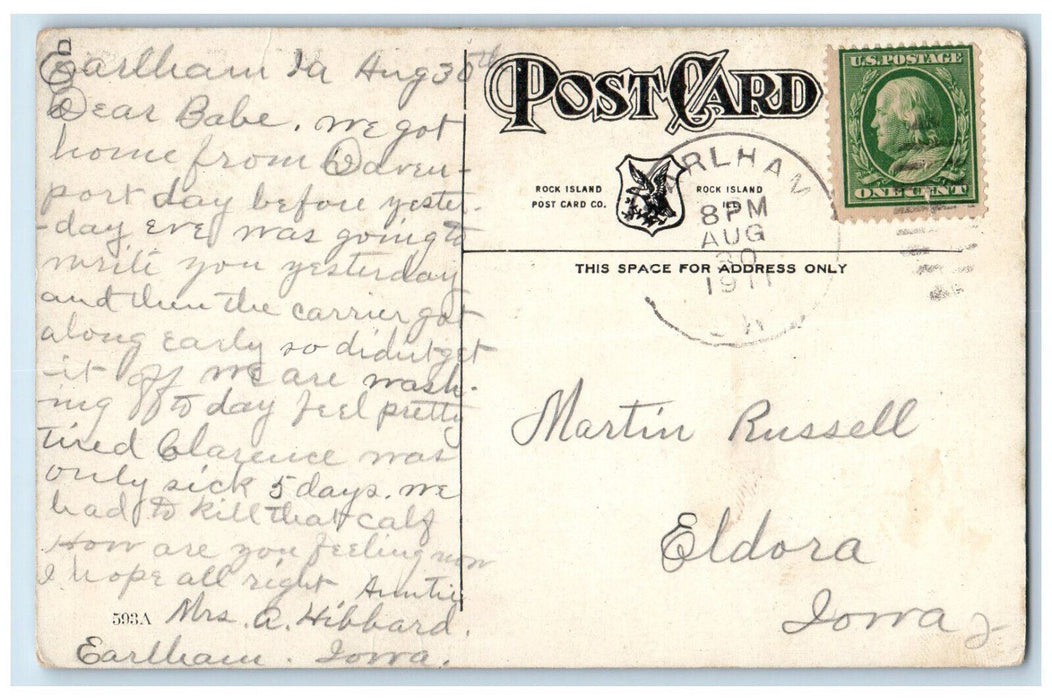 Earlham Ia Aug 30th
Dear Babe. we got
home from Daven-
port day before yester-
-day eve was going to
write you yesterday
and then the carrier got
along early so didn't get
-it off we are wash-
-ing to day feel pretty
tired Clarence was
only sick 5 days. we
had to kill that calf
How are you feeling now
I hope all right Auntie
593A Mrs. A. Hibbard.
Earlham. Iowa.
POST CARD
U.S. POSTAGE
ONE CENT
ROCK ISLAND
POST CARD CO.
ROCK ISLAND
RLHAM
8PM
AUG
30
1911
THIS SPACE FOR ADDRESS ONLY
Martin Russell
Eldora
Iowa